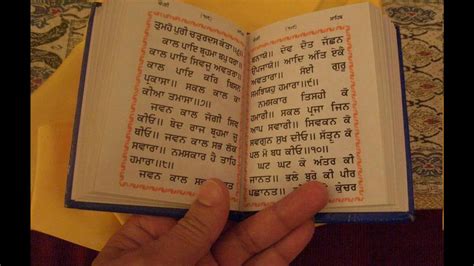 ਸਾਹਿਬ
ਪੁਰੀ ਚਤੁਰਦਸ ਕੰਤਾ॥
ਕਾਲ ਪਾਇ ਬ੍ਰਹਮਾ ਬਪੁ ਧਰਾ॥
ਕਾਲ ਪਾਇ ਸਿਵਜੂ ਅਵਤਰਾ॥
ਕਾਲ ਪਾਇ ਕਰਿ ਬਿਸਨ
ਪ੍ਰਕਾਸਾ॥ ਸਕਲ ਕਾਲ ਕਾ
ਕੀਆ ਤਮਾਸਾ॥੭॥
ਜਵਨ ਕਾਲ ਜੋਗੀ ਸਿਵ
ਕੀਓ॥ ਬੇਦ ਰਾਜ ਬ੍ਰਹਮਾ ਜੂ
ਥੀਓ॥ ਜਵਨ ਕਾਲ ਸਭ ਲੋਕ
ਸਵਾਰਾ॥ ਨਮਸਕਾਰ ਹੈ ਤਾਹਿ
ਹਮਾਰਾ॥੮॥
ਜਵਨ ਕਾਲ ਸਭ
ਬਨਾਯੋ॥ ਦੇਵ ਦੈਤ ਜੱਛਨ
ਉਪਜਾਯੋ॥ ਆਦਿ ਅੰਤਿ ਏਕੈ
ਅਵਤਾਰਾ॥ ਸੋਈ ਗੁਰੂ
ਸਮਝਿਯਹੁ ਹਮਾਰਾ॥੯॥
ਨਮਸਕਾਰ ਤਿਸਹੀ ਕੋ
ਹਮਾਰੀ॥ ਸਕਲ ਪ੍ਰਜਾ ਜਿਨ
ਆਪ ਸਵਾਰੀ॥ ਸਿਵਕਨ ਕੋ
ਸੁਖ ਦੀਓ॥ ਸੱਤ੍ਰੁਨ ਕੋ
ਪਲ ਮੋ ਬਧ ਕੀਓ॥੧੦॥
ਘਟ ਘਟ ਕੇ ਅੰਤਰ ਕੀ
ਜਾਨਤ॥ ਭਲੇ ਬੁਰੇ ਕੀ ਪੀਰ
ਪਛਾਨਤ॥ ਤੇ ਕੁੰਚਰ